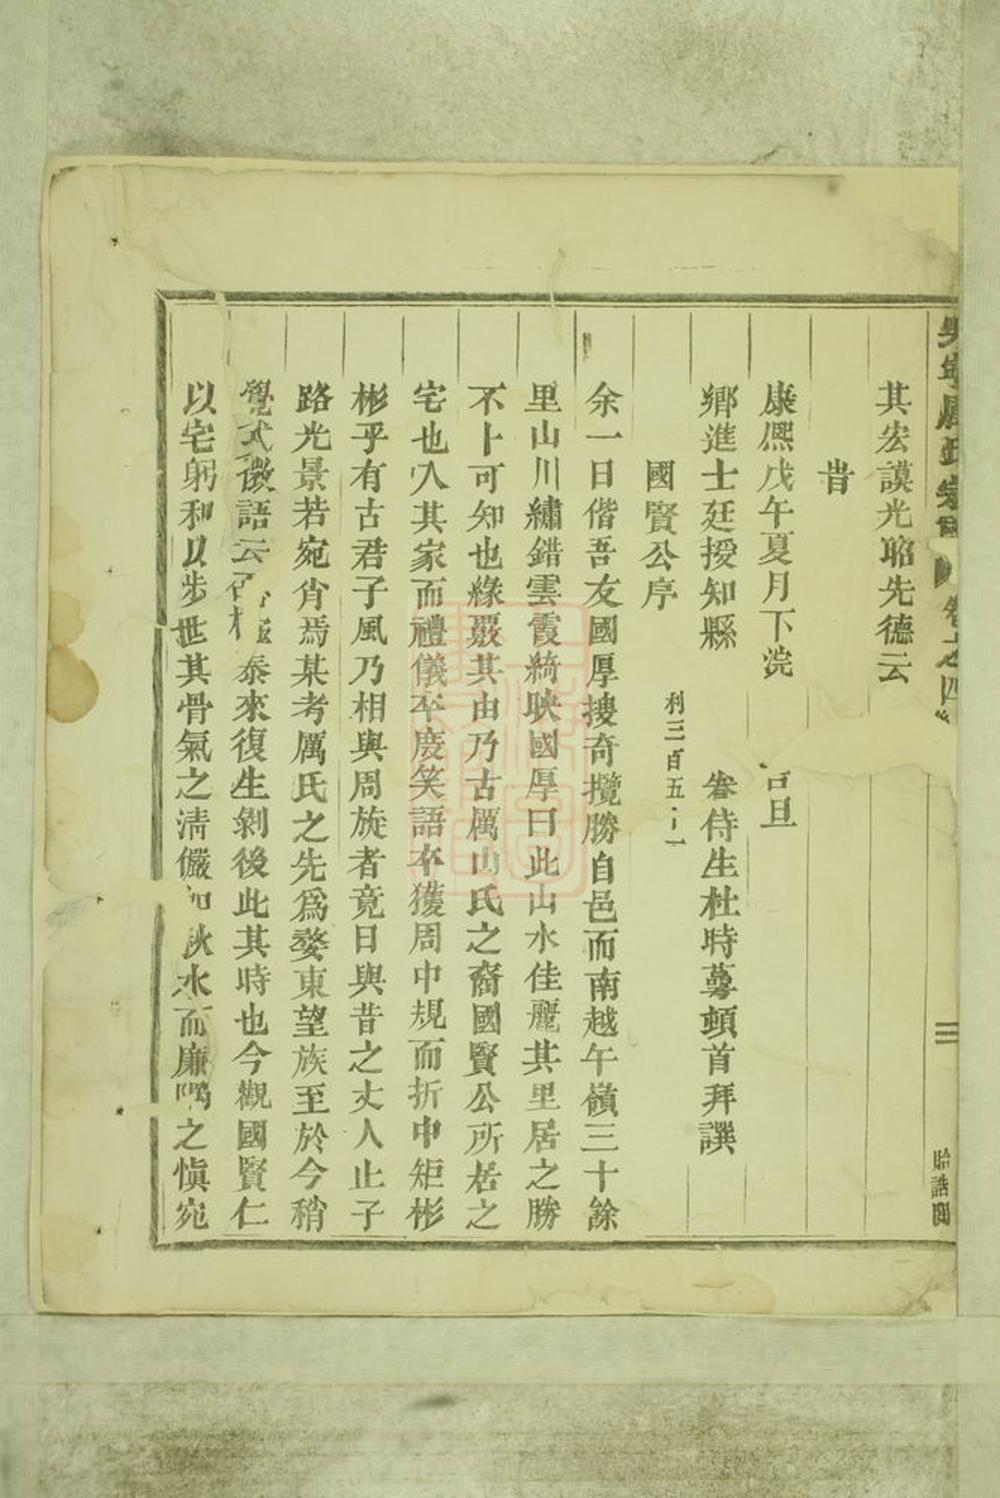 其宏謨光昭先德云
旹
康熙戊午夏月下浣 吉旦
鄉進士廷授知縣 眷侍生杜時蕚頓首拜譔
國賢公序
利三百五
余一日偕吾友國厚搜奇攬勝自邑而南越午嶺三十餘
里山川繡錯雲霞綺映國厚曰此山水佳麗其里居之勝
不卜可知也緣覈其由乃古厲山氏之裔國賢公所居之
宅也入其家而禮儀卒度笑語卒獲周中規而折中矩彬
彬乎有古君子風乃相與周旋者竟日與昔之丈人止子
路光景若宛肖焉某考厲氏之先爲婺東望族至於今稍
覺式微語云否極泰來復生剝後此其時也今觀國賢仁
以宅躬和以步世其骨氣之清儼如秋水而廉隅之愼宛
氏宗 卷之四
三
貽誥閣